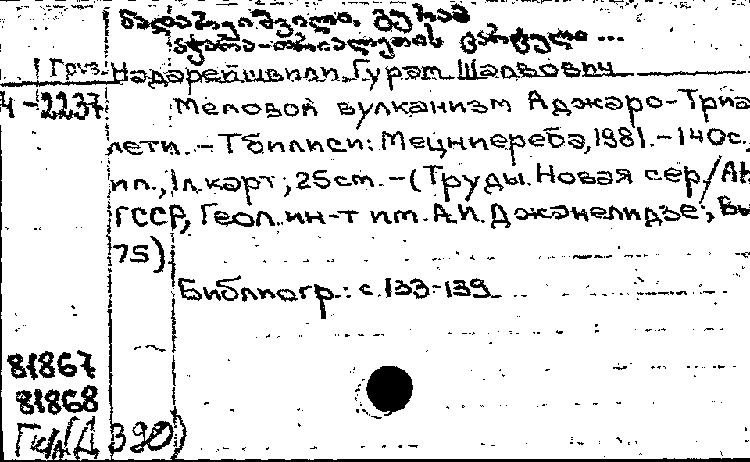 ნადარეიშვილი, გურამ
აჭარა-თრიალეთის ცარცული ...
Груз. Надарейшвили, Гурам Шалвович
4-2237 Меловой вулканизм Аджаро-Триа
лети. - Тбилиси: Мецниереба, 1981. - 140с.,
ил., 1л. карт; 25cm. - (Труды. Новая сер./ АН
ГССР, Геол. ин-т им. А.И. Джанелидзе; Вы
75).
Библиогр.: с. 133-139
81867
81868